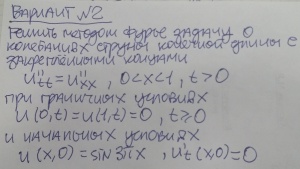 ВАРИАНТ №2
Решить методом Фурье задачу о
колебаниях струны конечной длины с
закрепленными концами
u''tt = u''xx, 0<x<1, t>0
при граничных условиях
u(0,t)=u(1,t)=0, t≥0
и начальных условиях
u(x,0)=sin3πx, u't(x,0)=0